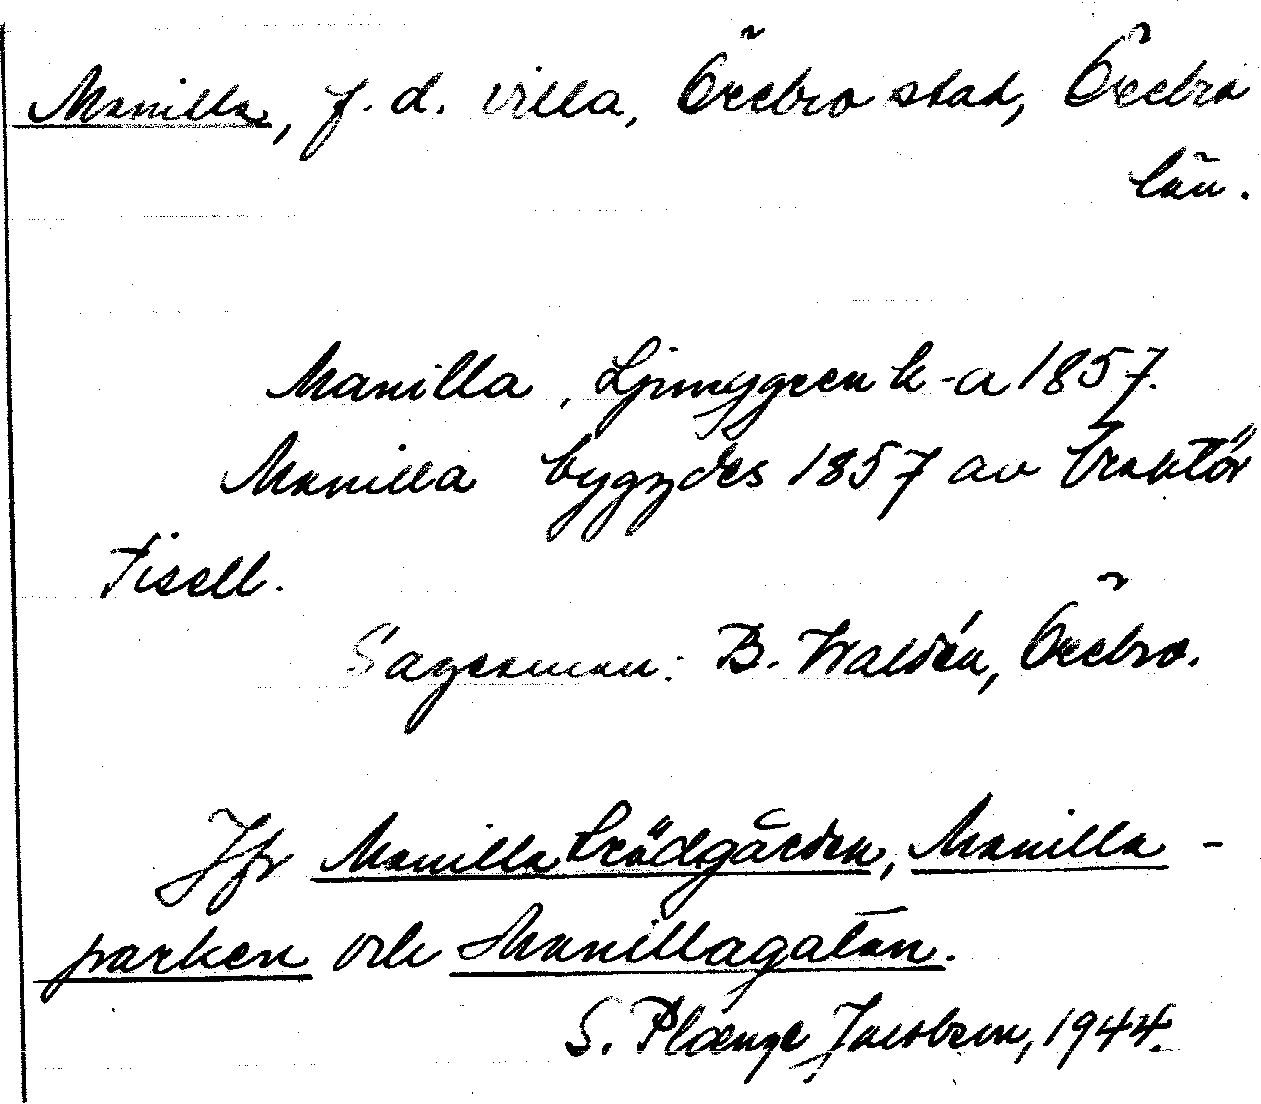 Manilla, f. d. villa, Örebro stad, Örebro
län.
Manilla, Ljunggren k-a 1857.
Manilla byggdes 1857 av traktör
Fisell.
Sagesman: B. Waldén, Örebro.
Jfr Manillaträdgården, Manilla-
parken och Manillagatan.
S. Plænge Jacobson, 1944.